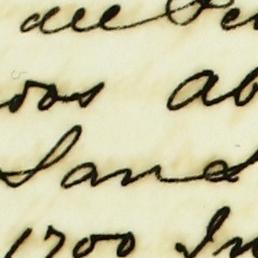 all Pe
oos ab
Sand
1700 In